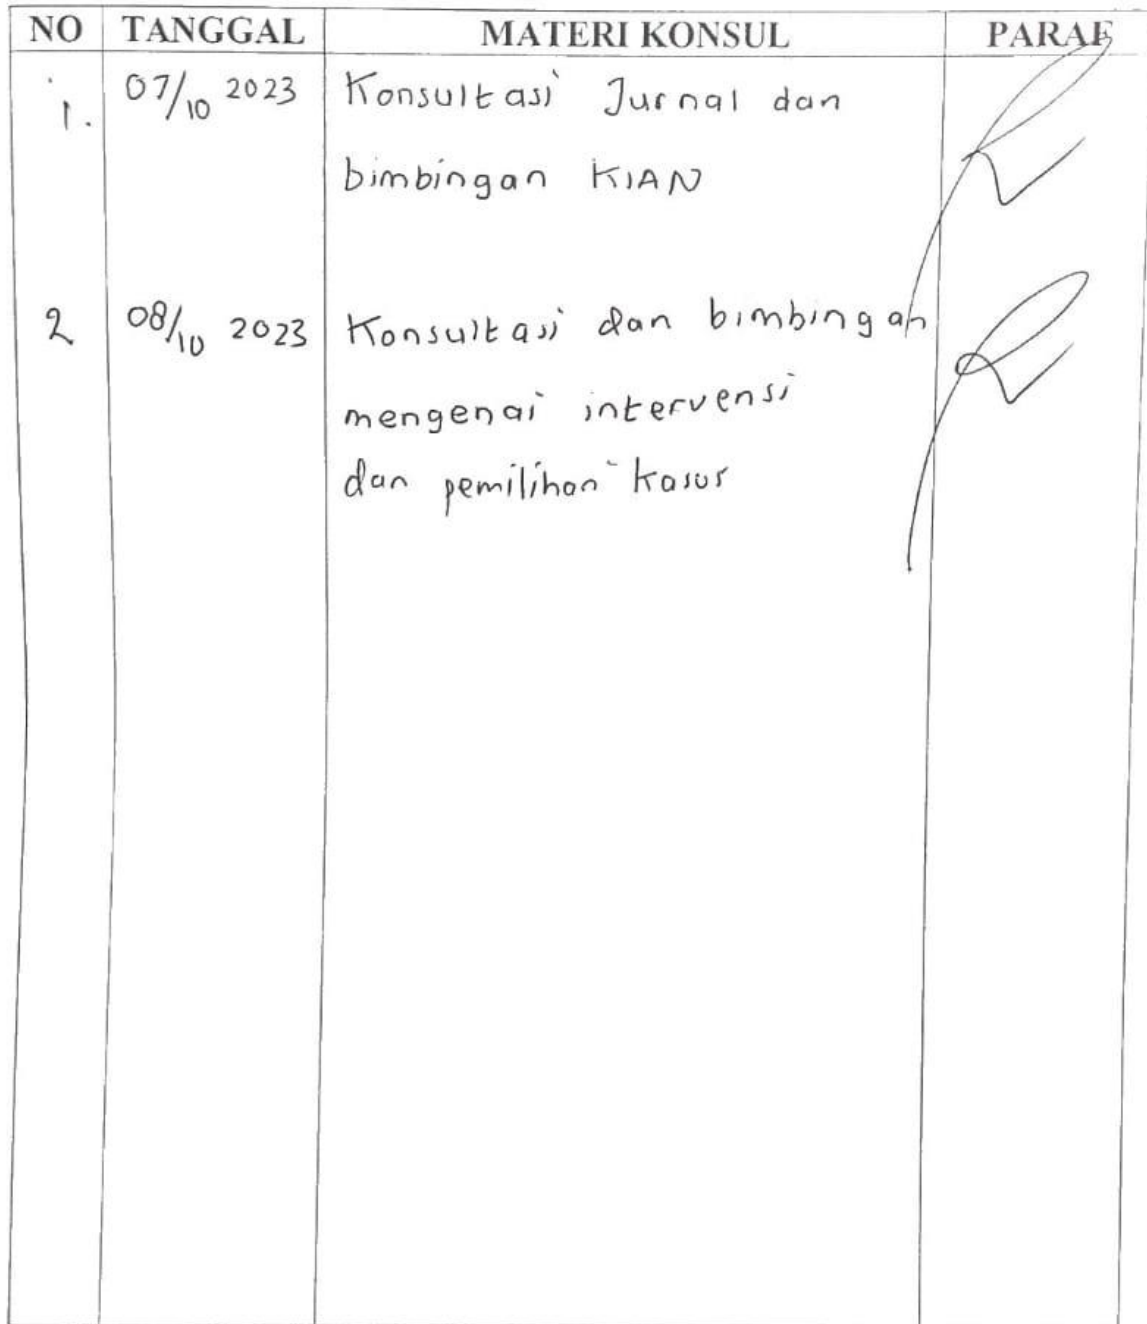 NO TANGGAL MATERI KONSUL PARAF
1. 07/10 2023 Konsultasi Jurnal dan
bimbingan KIAN
2 08/10 2023 Konsultasi dan bimbingan
mengenai intervensi
dan pemilihan kasus